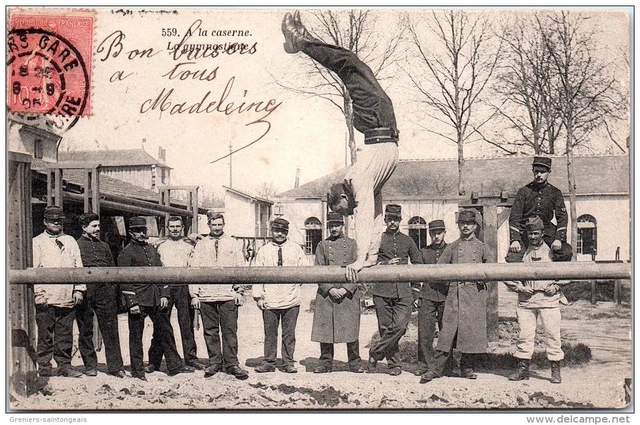 559. A la caserne.
La gymnastique
Bon baisers
a tous
Madeleine
GARE
Greniers-saintongeais
www.delcampe.net